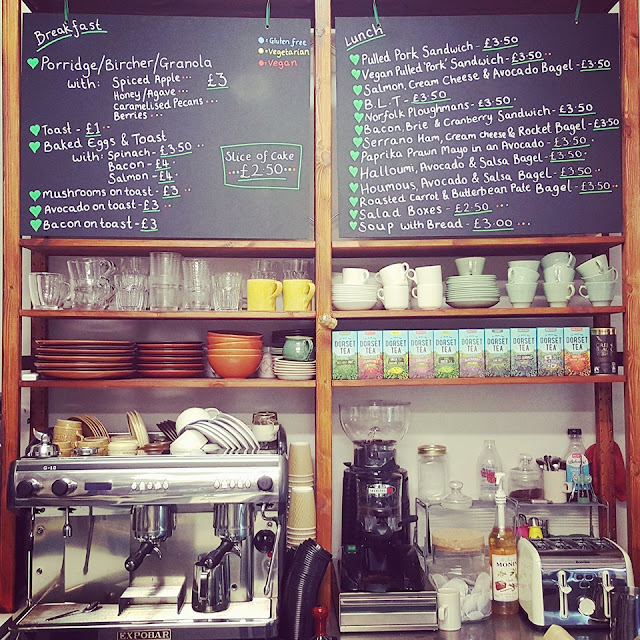 Breakfast
Gluten Free
Vegetarian
Vegan
Porridge/Bircher/Granola
with: Spiced Apple £3
Honey/Agave
Caramelised Pecans
Berries
Toast - £1
Baked Eggs & Toast
with: Spinach - £3.50
Bacon - £4
Salmon - £4
mushrooms on toast - £3
Avocado on toast - £3
Bacon on toast - £3
Slice of Cake
£2.50
Lunch
Pulled Pork Sandwich - £3.50
Vegan Pulled 'Pork' Sandwich - £3.50
Salmon, Cream Cheese & Avocado Bagel - £3.50
B.L.T - £3.50
Norfolk Ploughmans - £3.50
Bacon, Brie & Cranberry Sandwich - £3.50
Serrano Ham, Cream cheese & Rocket Bagel - £3.50
Paprika Prawn Mayo in an Avocado - £3.50
Halloumi, Avocado & Salsa Bagel - £3.50
Houmous, Avocado & Salsa Bagel - £3.50
Roasted Carrot & Butterbean Pate Bagel - £3.50
Salad Boxes - £2.50
Soup with Bread - £3.00
DORSET TEA
DORSET TEA
DORSET TEA
DORSET TEA
DORSET TEA
DORSET TEA
DORSET TEA
DORSET TEA
DORSET TEA
DORSET TEA
G-10
EXPOBAR
MONIN